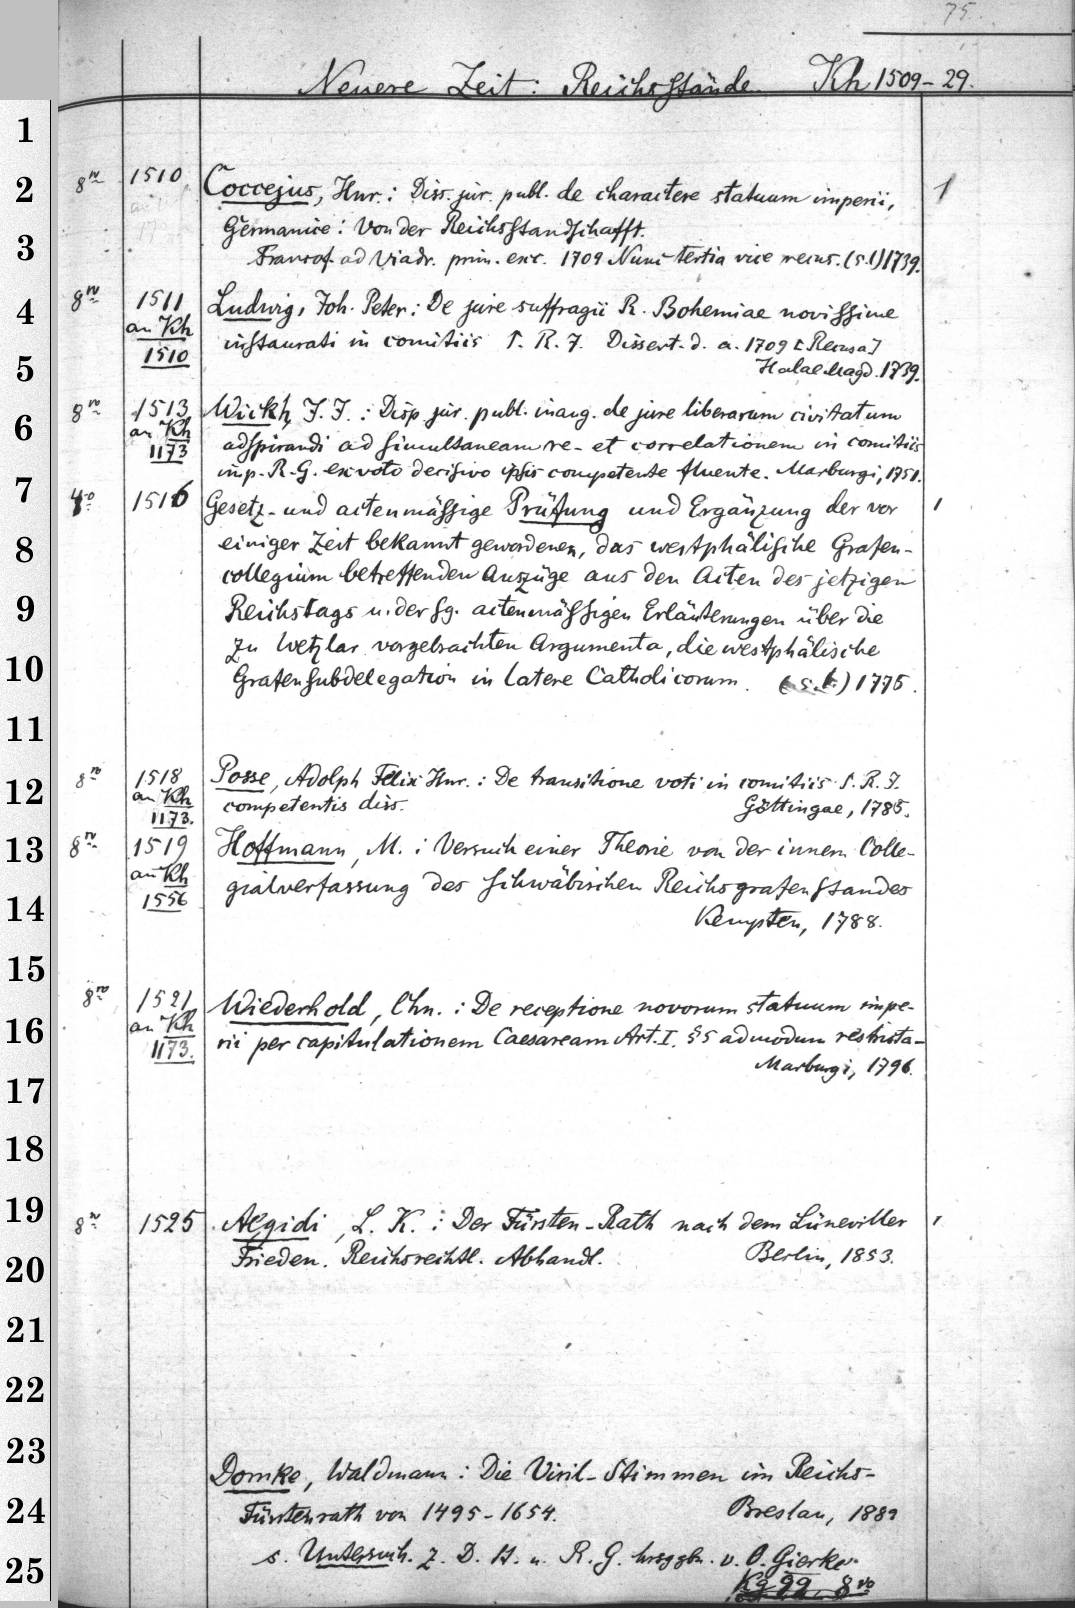 75.
Neuere Zeit: Reichsstände. Kh 1509-29.
8vo 1510 Coccejus, Hnr.: Diss. jur. publ. de charactere statuum imperii,
Germanice: Von der Reichsstandschafft.
Francof. ad Viadr. prim. exc. 1709 Nunc tertia vice recus. (s.l) 1739.
8vo 1511 Ludwig, Joh. Peter: De jure suffragii R. Bohemiae novissime
an Kh 1510 instaurati in comitiis S. R. J. Dissert. d. a. 1709 [Recusa]
Halae Magd. 1739.
8vo 1513 Wickh, J. J.: Disp jur. publ. inaug. de jure liberarum civitatum
an Kh 1173 adspirandi ad simultaneam re- et correlationem in comitiis
imp. R.-G. ex voto decisivo ipsis competente fluente. Marburgi, 1751.
4o 1516 Gesetz- und actenmässige Prüfung und Ergänzung der vor
einiger Zeit bekannt gewordenen, das westphälische Grafen-
collegium betreffenden Auszüge aus den Acten des jetzigen
Reichstags u. der sg. actenmässigen Erläuterungen über die
zu Wetzlar vorgebrachten Argumenta, die westphälische
Grafensubdelegation in latere Catholicorum. (s.l.) 1775.
8vo 1518 Posse, Adolph Felix Hnr.: De transitione voti in comitiis S. R. J.
an Kh 1173. competentis diss. Göttingae, 1785.
8vo 1519 Hoffmann, M.: Versuch einer Theorie von der innern Colle-
an Kh 1556 gialverfassung des schwäbischen Reichsgrafenstandes
Kempten, 1788.
8vo 1521 Wiederhold, Chn.: De receptione novorum statuum impe-
an Kh 1173. rii per capitulationem Caesaream Art. I. §5 admodum restricta-
Marburgi, 1796.
8vo 1525 Aegidi, L. K.: Der Fürsten-Rath nach dem Lüneviller
Frieden. Reichsrechtl. Abhandl. Berlin, 1853.
Domke, Waldmann: Die Viril-Stimmen im Reichs-
Fürstenrath von 1495-1654. Breslau, 1882
s. Untersuch. z. D. St. u. R. G. hrsggbn. v. O. Gierke.
Kg 99. 8vo
1
2
3
4
5
6
7
8
9
10
11
12
13
14
15
16
17
18
19
20
21
22
23
24
25